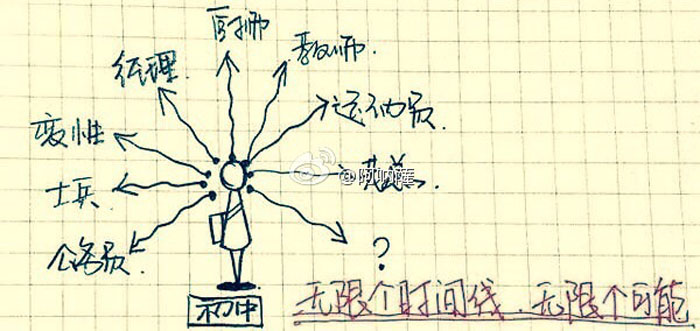 厨师
教师
经理
运动员
变性
士兵
公务员
?
@阿呐薩
初中
无限个时间线.无限个可能